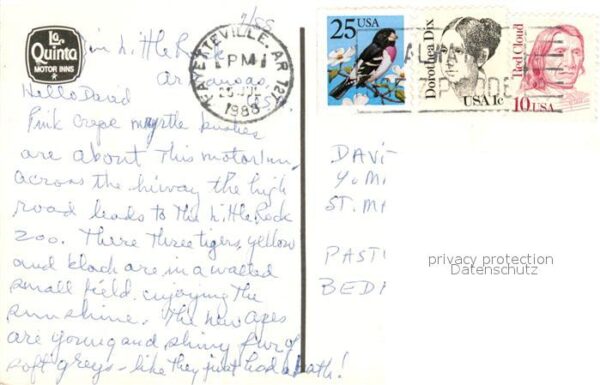 La
Quinta
MOTOR INNS
Little Rock
Arkansas
Hello David
Pink crepe myrtle bushes
are about this motor inn.
across the hiway the high
road leads to the Little Rock
zoo. There three tigers, yellow
and black are in a walled
small field enjoying the
sunshine. The new apes
are young and shiny fur of
soft greys - like they just had a bath!
FAYETTEVILLE, AR 727
PM
1988
25 USA
Dorothea Dix
USA 1c
Red Cloud
10 USA
DAVI
ST. M
PAST
BED
privacy protection
Datenschutz